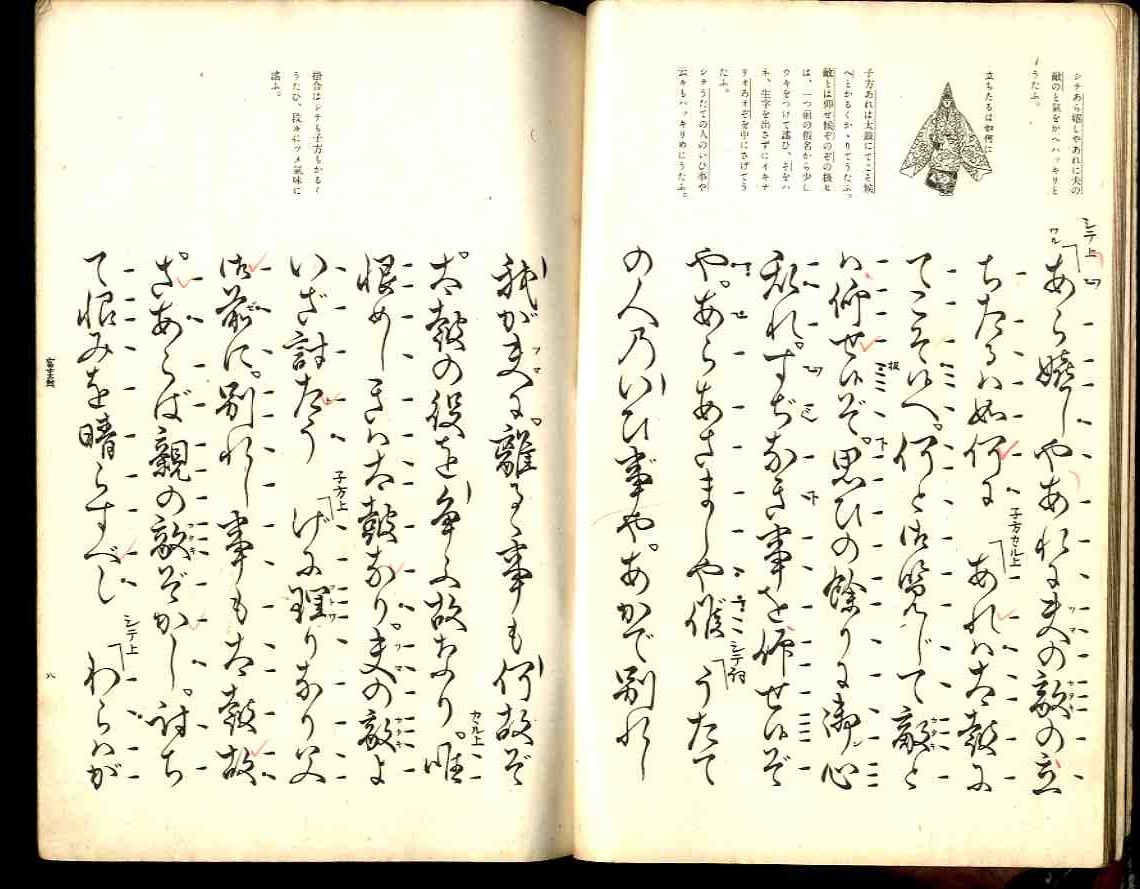 シテあら嬉しやあれに夫の
敵のと氣をかへハッキリと
うたふ。
立ちたるは如何に
子方あれは太鼓にてこそ候
へとかるくかゝりてうたふ。
敵とは仰せ候ぞのぞの扱ヒ
は、一つ前の假名から少し
ウキをつけて謠ひ、そをハ
ネ、生字を出さずにイキナ
リオあオぞを中にさげてう
たふ。
シテうたての人のいひ事や
云々もハッキリめにうたふ。
シテ上
あら嬉しやあれに夫の敵の立
ちたるは如何に
子方カル上
あれは太鼓に
てこそ候へ。何と御覧じて敵と
は仰せ候ぞ。思ひの餘りに御心
亂れ。すぢなき事を仰せ候ぞ
や。あらあさましや候
シテ詞
うたて
の人のいひ事や。あかで別れし
我が夫に。離るゝ事も何故ぞ
太鼓の役を争ふ故なり。
カル上
唯
恨めしきは太鼓なり。夫の敵よ
いざ討たう
子方上
げに理りなり父
御前に。別れし事も太鼓故
さあらば親の敵ぞかし。討ち
て恨みを晴らすべし
シテ上
わらはが
掛合はシテも子方もかるく
うたひ、段々にツメ氣味に
謠ふ。
富士太鼓
八